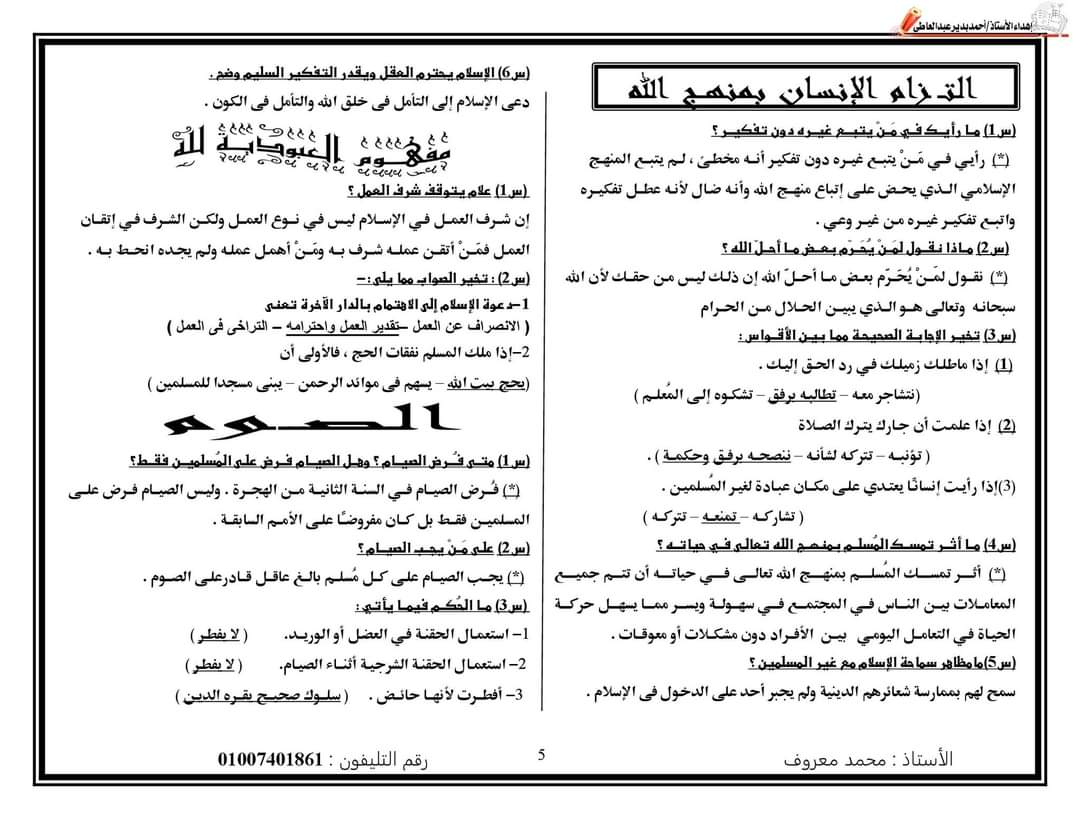 إهداء الأستاذ/أحمد بدير عبدالعاطى
التزام الإنسان بمنهج الله
(س1) ما رأيك في مَنْ يتبع غيره دون تفكير ؟
(*) رأيي في مَنْ يتبع غيره دون تفكير أنه مخطئ ، لم يتبع المنهج
الإسلامي الذي يحض على إتباع منهج الله وأنه ضال لأنه عطل تفكيره
واتبع تفكير غيره من غير وعي .
(س2) ماذا نقول لمَنْ يُحَرّم بعض ما أحلّ الله ؟
(*) نقول لمَنْ يُحَرّم بعض ما أحلّ الله إن ذلك ليس من حقك لأن الله
سبحانه وتعالى هو الذي يبين الحلال من الحرام
(س3) تخير الإجابة الصحيحة مما بين الأقواس :
(1) إذا ماطلك زميلك في رد الحق إليك .
(نتشاجر معه – تطالبه برفق – تشكوه إلى المُعلم )
(2) إذا علمت أن جارك يترك الصلاة
( تؤنبه – تتركه لشأنه – ننصحه برفق وحكمة ) .
(3)إذا رأيت إنسانًا يعتدي على مكان عبادة لغير المُسلمين .
( تشاركه – تمنعه – تتركه )
(س4) ما أثر تمسك المُسلم بمنهج الله تعالى في حياته ؟
(*) أثر تمسك المُسلم بمنهج الله تعالى في حياته أن تتم جميع
المعاملات بين الناس في المجتمع في سهولة ويسر مما يسهل حركة
الحياة في التعامل اليومي بين الأفراد دون مشكلات أو معوقات .
(س5)ما مظاهر سماحة الإسلام مع غير المسلمين ؟
سمح لهم بممارسة شعائرهم الدينية ولم يجبر أحد على الدخول فى الإسلام .
(س6) الإسلام يحترم العقل ويقدر التفكير السليم وضح .
دعى الإسلام إلى التأمل فى خلق الله والتأمل فى الكون .
مفهوم العبودية لله
(س1) علام يتوقف شرف العمل ؟
إن شرف العمل في الإسلام ليس في نوع العمل ولكن الشرف في إتقان
العمل فمَنْ أتقن عمله شرف به ومَنْ أهمل عمله ولم يجده انحط به .
(س2) : تخير الصواب مما يلى :–
1–دعوة الإسلام إلى الاهتمام بالدار الآخرة تعنى
( الانصراف عن العمل –تقدير العمل واحترامه – التراخى فى العمل )
2–إذا ملك المسلم نفقات الحج ، فالأولى أن
(يحج بيت الله – يسهم فى موائد الرحمن – يبنى مسجدا للمسلمين )
الصوم
(س1) متى فُرض الصيام ؟ وهل الصيام فرض على المُسلمين فقط؟
(*) فُرض الصيام في السنة الثانية من الهجرة . وليس الصيام فرض على
المسلمين فقط بل كان مفروضًا على الأمم السابقة .
(س2) على مَنْ يجب الصيام؟
(*) يجب الصيام على كل مُسلم بالغ عاقل قادرعلى الصوم .
(س3) ما الحُكم فيما يأتي :
1– استعمال الحقنة في العضل أو الوريد. ( لا يفطر )
2– استعمال الحقنة الشرجية أثناء الصيام. ( لا يفطر )
3– أفطرت لأنها حائض . ( سلوك صحيح يقره الدين )
الأستاذ : محمد معروف
5
رقم التليفون : 01007401861